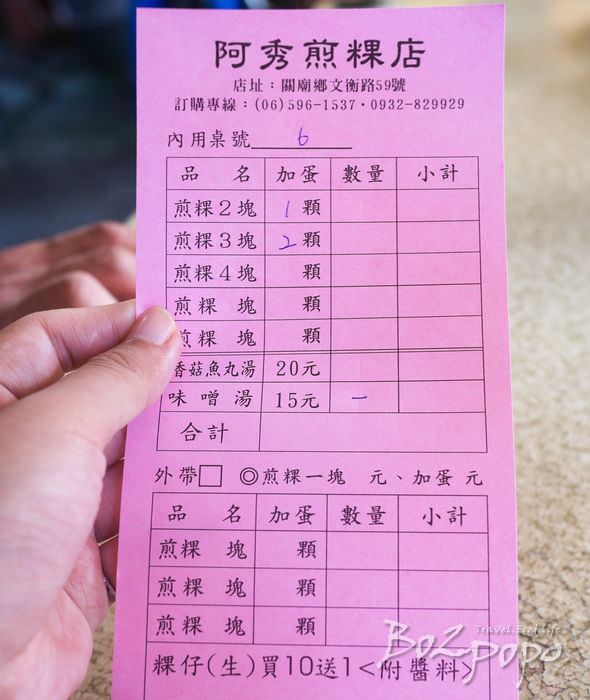 阿秀煎粿店
店址：關廟鄉文衡路59號
訂購專線：(06)596-1537·0932-829929
內用桌號 6
品 名 加蛋 數量 小計
煎粿2塊 1 顆
煎粿3塊 2 顆
煎粿4塊 顆
煎粿 塊 顆
煎粿 塊 顆
香菇魚丸湯 20元
味噌湯 15元 一
合計
外帶□ ◎煎粿一塊 元、加蛋 元
品 名 加蛋 數量 小計
煎粿 塊 顆
煎粿 塊 顆
煎粿 塊 顆
粿仔(生)買10送1<附醬料>
Travel.Food.Life
Bo2popo